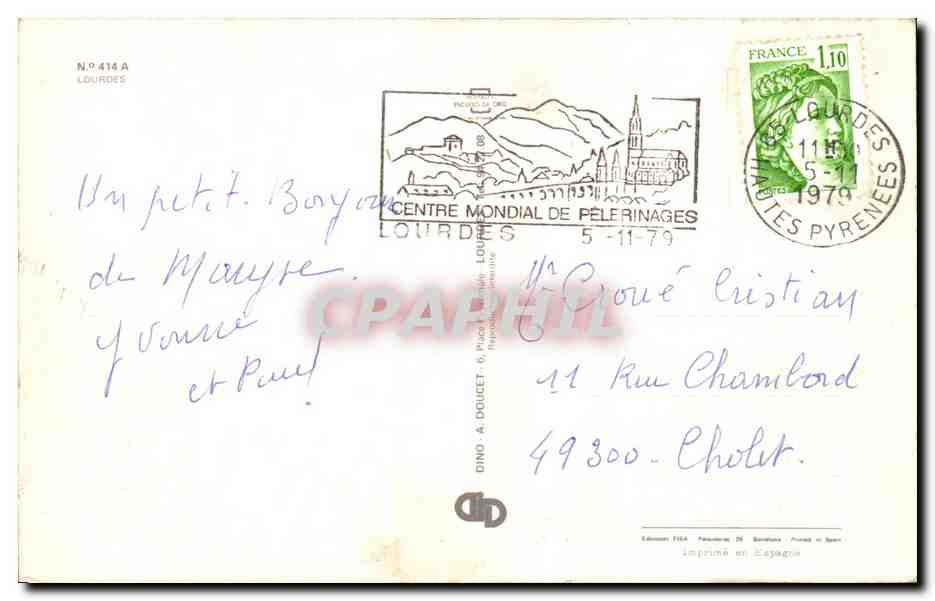 N.º 414 A
LOURDES
FRANCE
1,10
65 LOURDES
5-11
1979
HAUTES PYRENEES
CENTRE MONDIAL DE PÈLERINAGES
LOURDES 5-11-79
Un petit Bonjour
de Maryse.
Yvonne
et Paul
CPAPHIL
DINO - A. DOUCET - 6, Place
LOURDES
Reproduction interdite
Mr Croué Cristian
11 Rue Chambord
49300 - Cholet.
DID
Ediciones FISA Palaudarias 26 Barcelona - Printed in Spain
Imprimé en Espagne